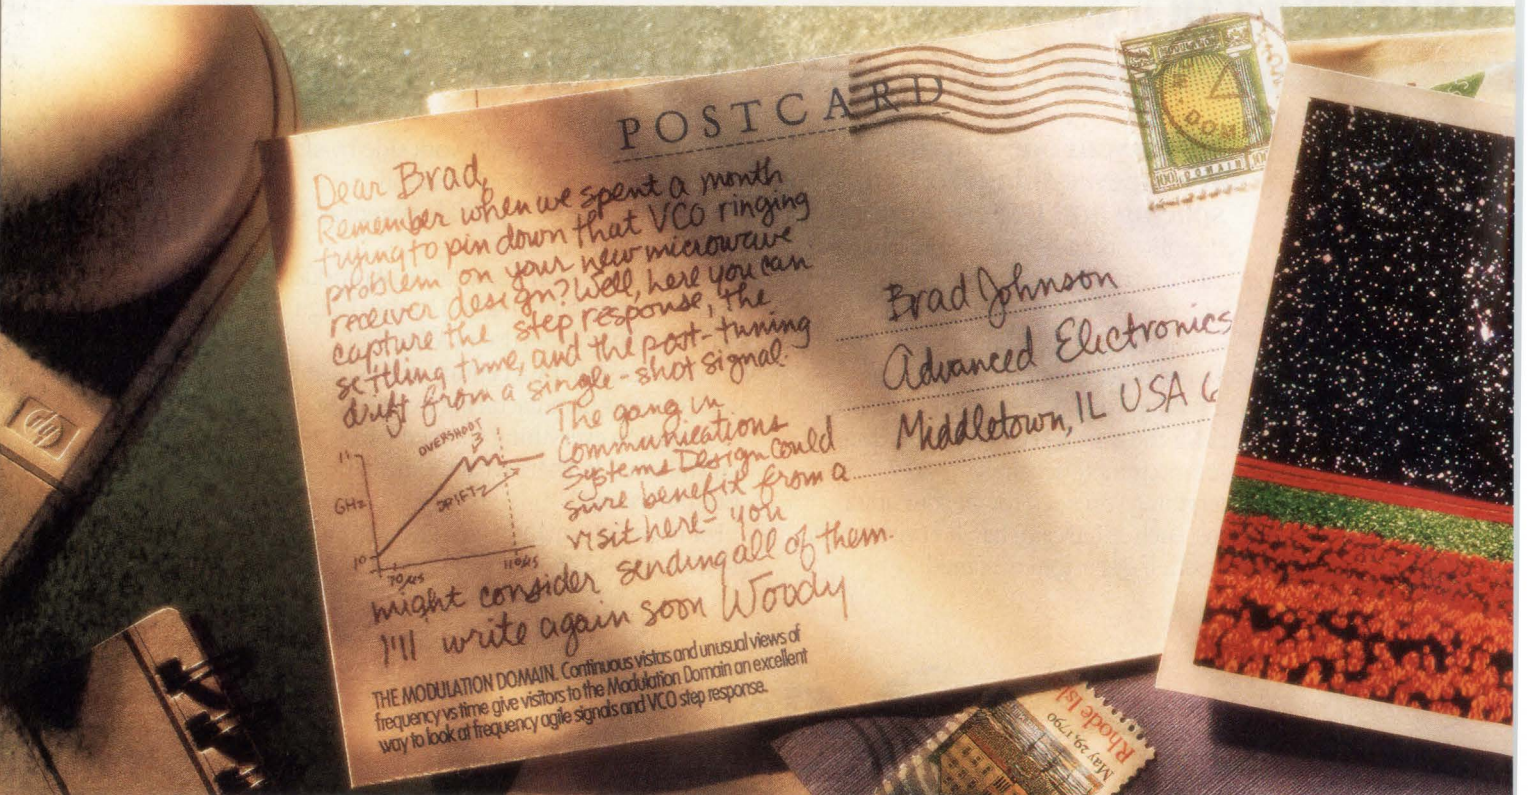 POSTCARD
Dear Brad,
Remember when we spent a month
trying to pin down that VCO ringing
problem on your new microwave
receiver design? Well, here you can
capture the step response, the
settling time, and the post-tuning
drift from a single-shot signal.
The gang in
Communications
Systems Design could
sure benefit from a
visit here- you
might consider sending all of them.
I'll write again soon Woody
OVERSHOOT
11
GHz
DRIFT
10
110µS
THE MODULATION DOMAIN. Continuous vistas and unusual views of
frequency vs time give visitors to the Modulation Domain an excellent
way to look at frequency agile signals and VCO step response.
Brad Johnson
Advanced Electronics
Middletown, IL USA 6
100 DOMAIN 100
DOM
hp
Rhode Isl
May 29, 1790